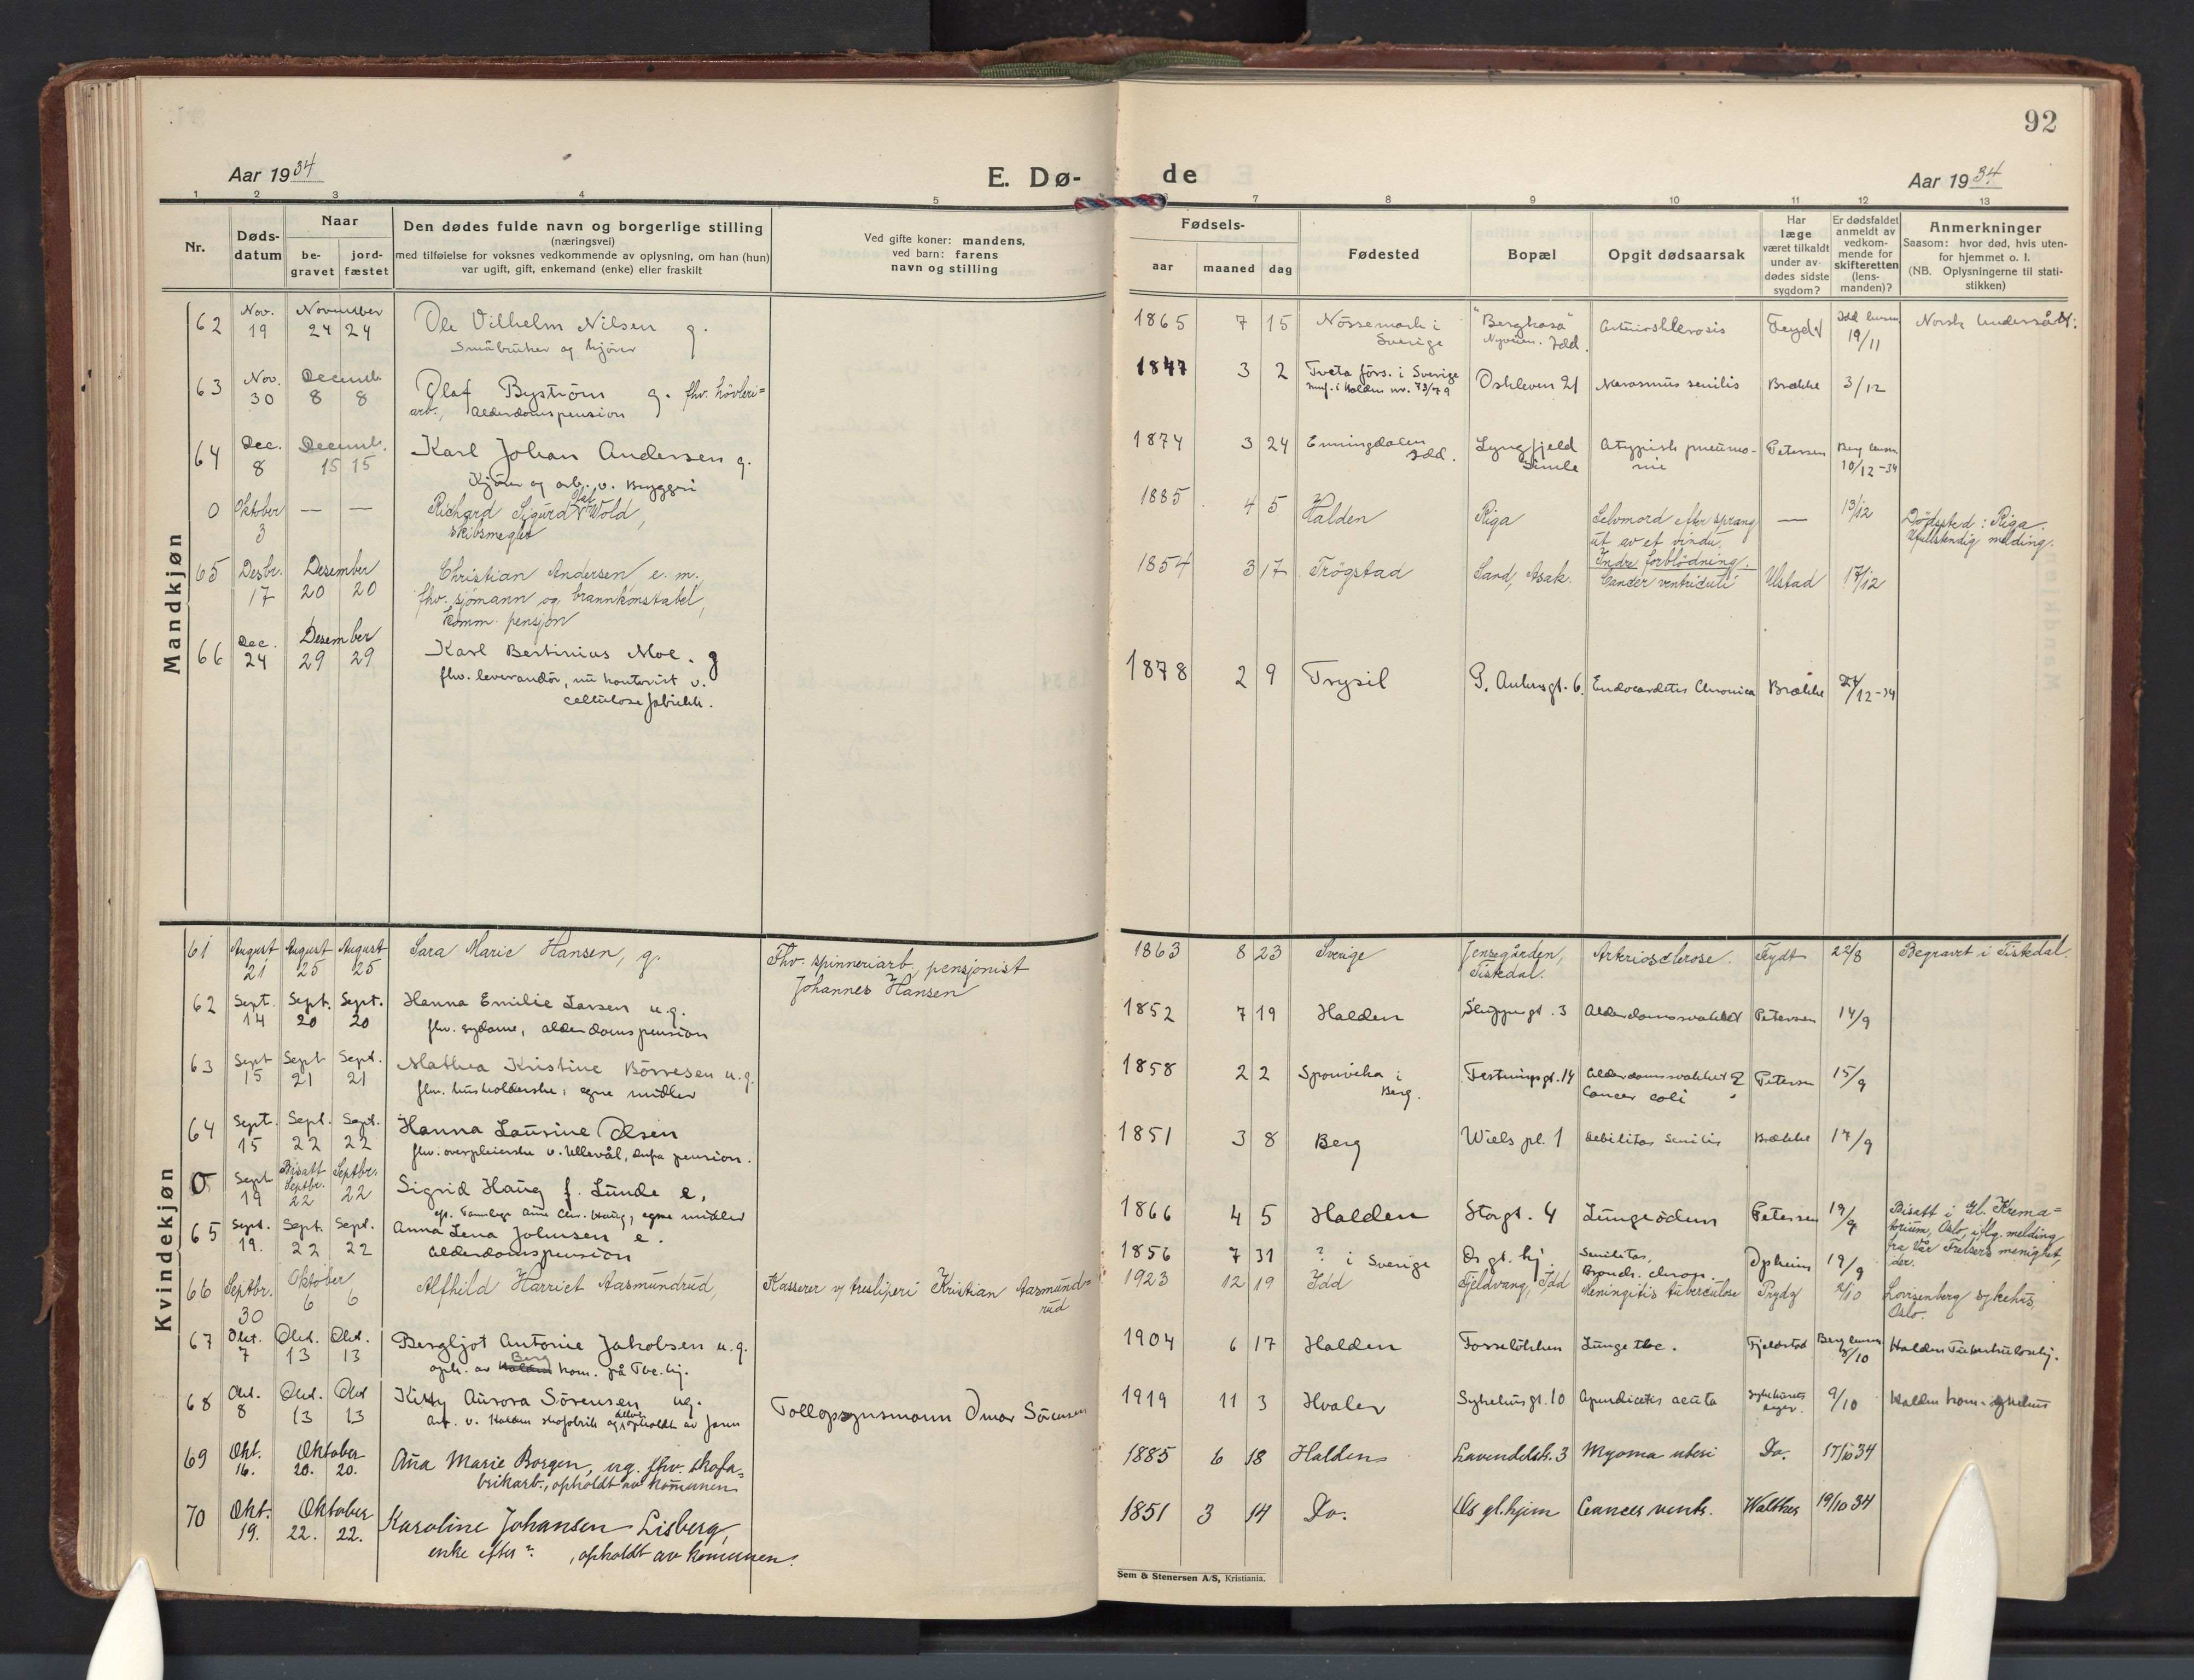 92
Aar 1934
E. Dø-
de
Aar 1934
1 2 3 4 5 7 8 9 10 11 12 13
Nr.
Døds-
datum
Naar
be-
gravet
jord-
fæstet
Den dødes fulde navn og borgerlige stilling
(næringsvei)
med tilføielse for voksnes vedkommende av oplysning, om han (hun)
var ugift, gift, enkemand (enke) eller fraskilt
Ved gifte koner: mandens,
ved barn: farens
navn og stilling
Fødsels-
aar
maaned
dag
Fødested
Bopæl
Opgit dødsaarsak
Har
læge
været tilkaldt
under av-
dødes sidste
sygdom?
Er dødsfaldet
anmeldt av
vedkom-
mende for
skifteretten
(lens-
manden)?
Anmerkninger
Saasom: hvor død, hvis uten-
for hjemmet o. l.
(NB. Oplysningerne til stati-
stikken)
Mandkjøn
62 Nov. 19 November 24 24 Ole Vilhelm Nilsen g.
Småbruker og kjører
1865 7 15 Nössemark i Sverige "Bergkasa" Nyveien. Idd. Arteriosklerosis Feydt Idd 19/11 Norsk Undersått.
63 Nov. 30 Decemb. 8 8 Olaf Byström g. fhv. hövleri=
arb., Alderdomspension
1847 3 2 Tveta förs. i Sverige
i Halden nr. 73/79 Oskleven 21 Marasmus senilis Brække 3/12
64 Dec. 8 Decemb. 15 15 Karl Johan Andersen g.
Kjører og arb. v. Bryggeri
1874 3 24 Enningdalen Idd. Lyngfjeld Atypisk pneumo-
nie Petersen Berg 10/12-34
0 Oktober 3 — — Richard Sigurd Wold,
skibsmegler
1885 4 5 Halden Riga Selvmord efter sprang
ut av et vindu. — 13/12 Dödssted: Riga.
Ufullstendig melding.
65 Desbr. 17 Desember 20 20 Christian Andersen e. m.
fhv. sjömann og brannkonstabel,
komm. pensjon
1854 3 17 Trögstad Sand, Asak. Indre forblödning.
Cancer ventriculi Ulstad 17/12
66 Dec. 24 Desember 29 29 Karl Bertinius Moe. g
fhv. leverandör, nu kontorist v.
cellulosefabrikk.
1878 2 9 Trysil P. Ankersgt. 6. Endocarditis chronica Brække 24/12-34
Kvindekjøn
61 August 21 August 25 August 25 Sara Marie Hansen, g. Fhv. spinneriarb, pensjonist
Johannes Hansen
1863 8 23 Sverige Jensegården,
Tistedal. Arteriosclerose. Feydt 22/8 Begravet i Tistedal.
62 Sept. 14 Sept. 20 Sept. 20 Hanna Emilie Larsen u.g.
fhv. sydame, alderdomspension
1852 7 19 Halden Skippergt. 3 Alderdomssvakhet Petersen 14/9
63 Sept 15 Sept 21 Sept. 21 Mathea Kristine Börresen u.g.
fhv. husholderske, egne midler
1858 2 2 Sponvika i
Berg. Festningsgt. 14 Alderdomssvakhet
Cancer coli Petersen 15/9
64 Sept. 15 Sept. 22 Sept. 22 Hanna Laurine Olsen
fhv. overpleierske v. Ullevål, pension.
1851 3 8 Berg Wiels pl. 1 debilitas senilis Brække 17/9
0 Sept 19 Bisatt
Septbr. 22 Septbr. 22 Sigrid Haug f. Lunde e.
egne midler
1866 4 5 Halden Storgt. 4 Lungeödem Petersen 19/9 Bisatt i Gl. Krema=
torium, Oslo, iflg. melding
fra Vår Frelsers menighet,
der.
65 Sept. 19. Sept. 22 Sept. 22 Anna Lena Johnsen e.
Alderdomspension
1856 7 31 ? i Sverige Os gl. hj. Senilitas,
Bronch. chron. Opheim 19/9
66 Septbr. 30 Oktober 6 6 Alfhild Harriet Aasmundrud, Kasserer v/ tresliperi Kristian Aasmund=
rud
1923 12 19 Idd Fjeldvang, Idd Meningitis tuberculose Prydz 2/10 Lovisenberg sykehus,
Oslo.
67 Okt. 7 Okt. 13 Okt. 13 Bergljot Antonie Jakobsen u.g.
oph. av Berg kom. på Tbc. hj.
1904 6 17 Halden Fosselökken Lunge tbc. Fjeldstad Berg 8/10 Halden Tuberkulosehj.
68 Okt. 8 Okt. 13 Okt 13 Kitty Aurora Sörensen ug.
Arb. v. Halden skofabrik
Tollopsynsmann Omar Sörensen
1919 11 3 Hvaler Sykehusgt. 10 Apendicitis acuta Sykehusets 9/10 Halden kom. sykehus
69 Okt. 16. Oktober 20. 20. Ana Marie Borgen, ug. fhv. skofa=
brikarb., opholdt av komunen
1885 6 18 Halden Lavendelstr. 3 Myoma uteri Do. 17/10 34
70 Okt. 19. Oktober 22. 22. Karoline Johansen Lisberg,
enke efter ? , opholdt av komunen.
1851 3 14 Do. Os gl. hjem Cancer ventr. Walther 19/10 34
Sem & Stenersen A/S, Kristiania.